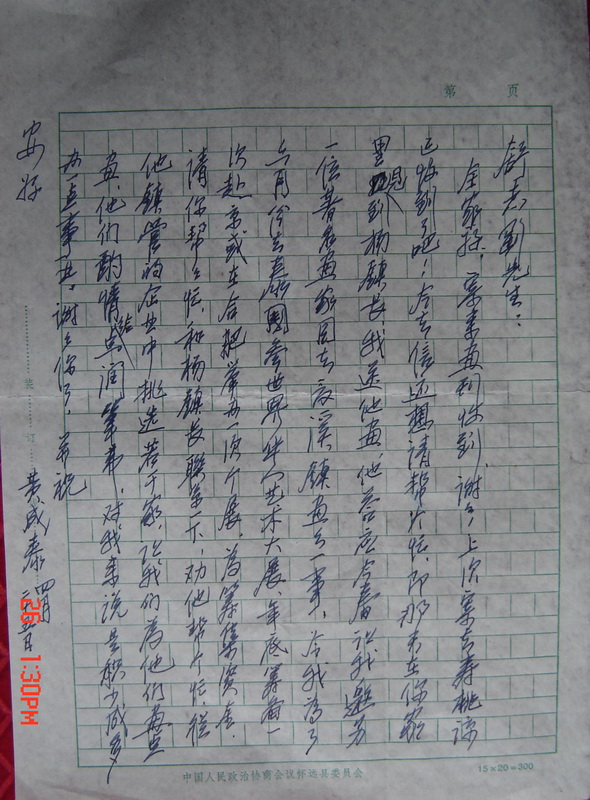 第 页
舒志刚先生：
全家好，寄来画刊收到，谢谢，上次寄去寿桃谅
已收到了吧！今去信还想请帮个忙，即那天在你家
里见到杨镇长，我送他画，他答应今春让我邀另
一位著名画家同去溪镇画画一事，今我为了
六月份去泰国参世界华人艺术大展，年底筹备一
次赴京或在合肥举办一次个展，为筹集资金，
请你帮帮忙，和杨镇长联系一下，劝他帮个忙从
他镇管的企业中挑选若干家，让我们为他们画点
画，他们酌情给点润笔费，对我来说是积少成多
办一点事业，谢谢你了，并祝
安好
黄成泰 四月
装 订
中国人民政治协商会议怀远县委员会
15×20=300
26 1:30PM